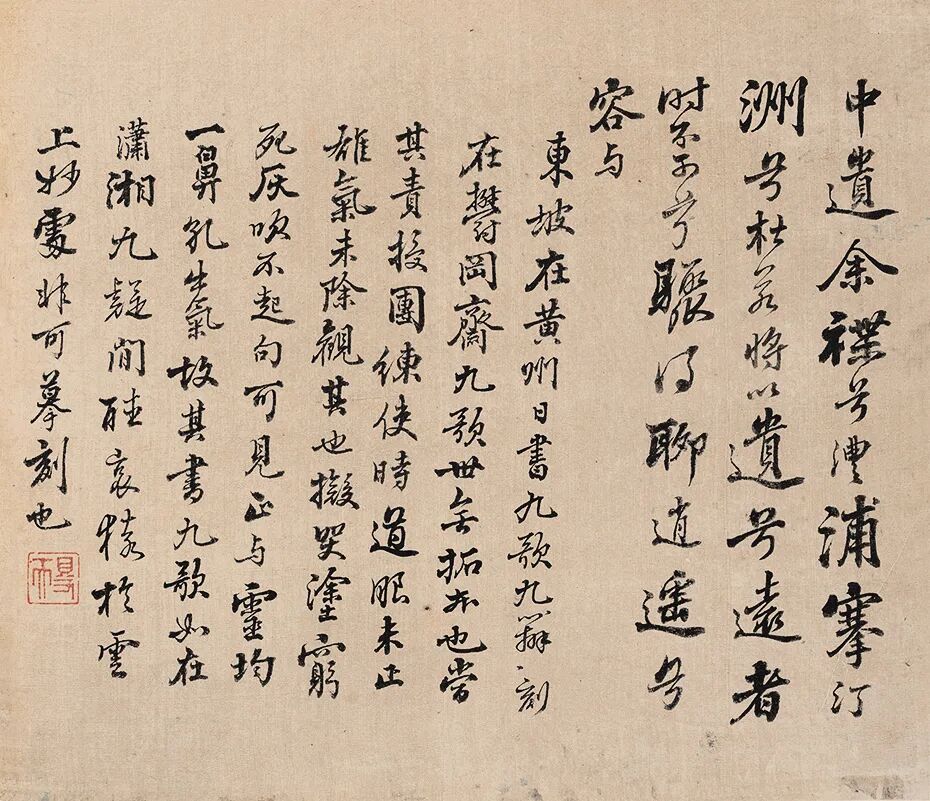 中遺余褋兮澧浦搴汀
洲兮杜若將以遺兮遠者
时不可兮驟得聊逍遥兮
容与
東坡在黄州日書九歌九辯〻刻
在欝岡齋九歌世無拓本也當
其責授團練使時道眼未正
雄氣未除觀其也擬哭塗窮
死灰吹不起句可見正与靈均
一鼻孔生氣故其書九歌如在
瀟湘九疑間哀猿於雲
上妙處非可摹刻也
得天